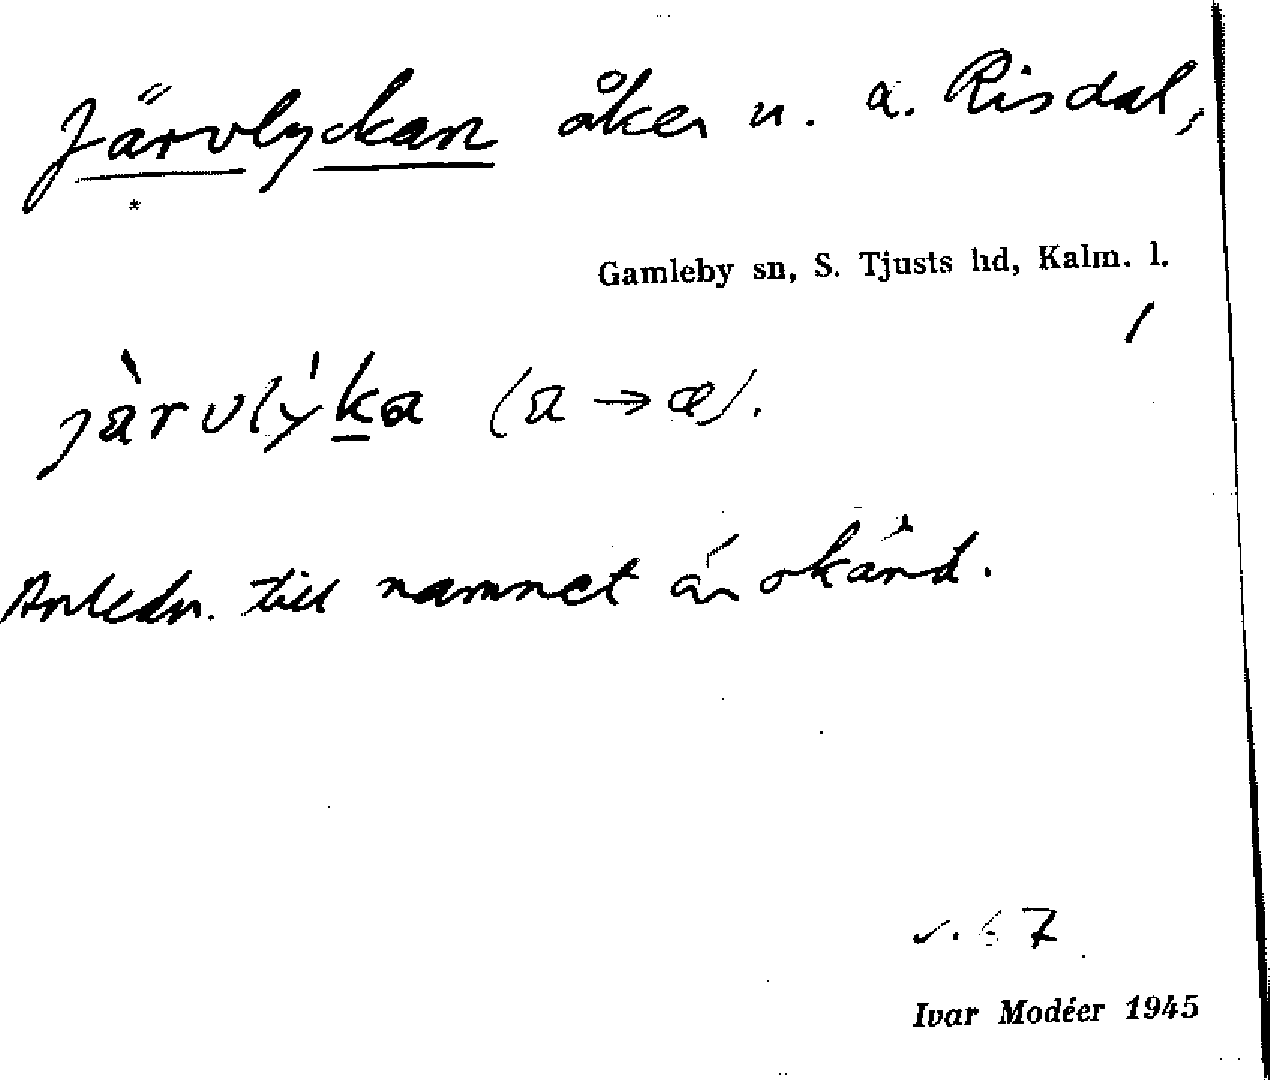 Järvlyckan åker u. ä. Risdal,
*
Gamleby sn, S. Tjusts hd, Kalm. l.
jàrvlýka (a → æ).
Anledn. till namnet är okänd.
s. 67
Ivar Modéer 1945